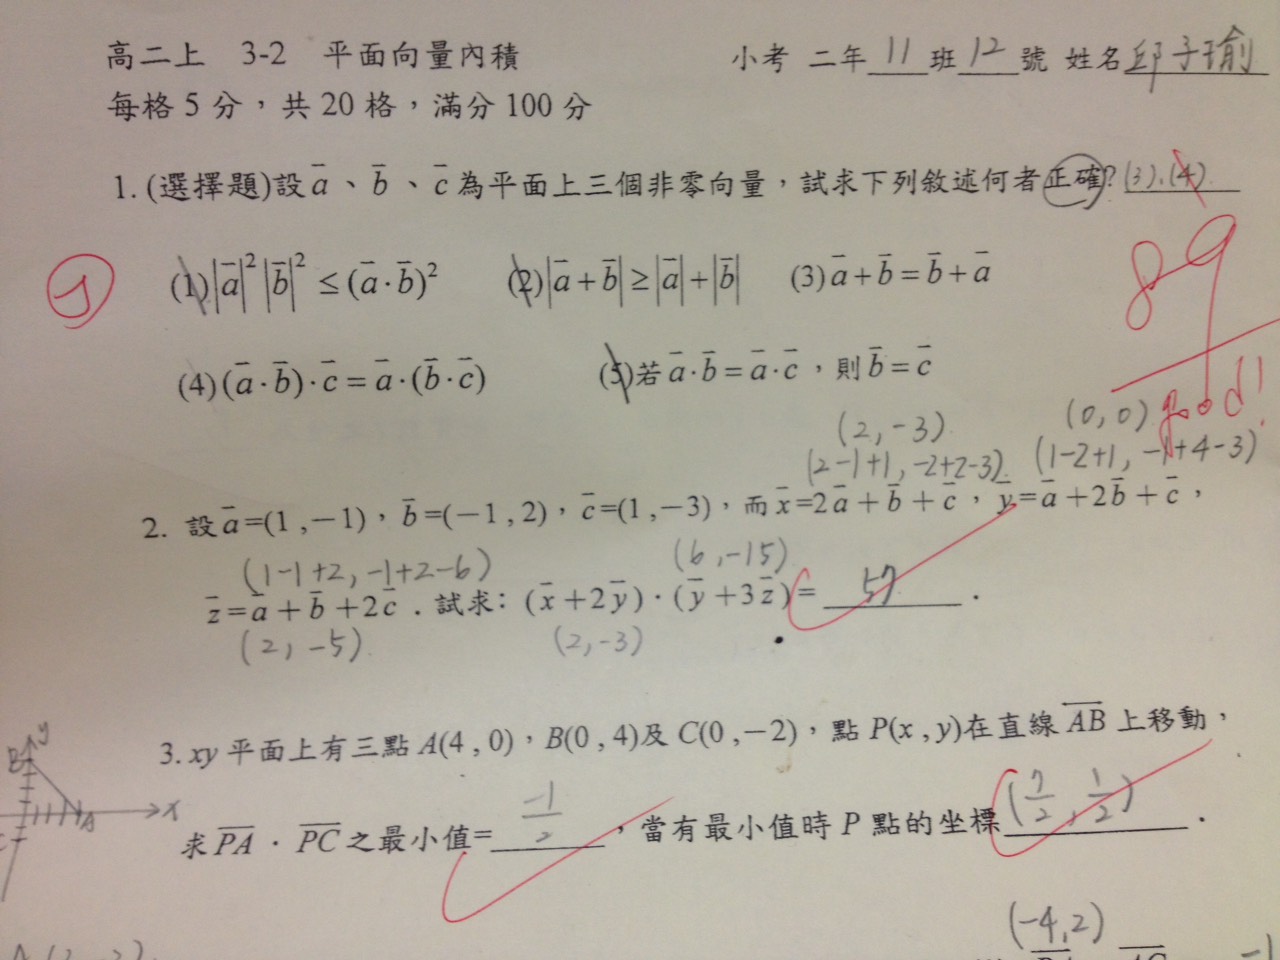 高二上 3-2 平面向量內積 小考 二年 11 班 12 號 姓名 邱子瑜
每格 5 分，共 20 格，滿分 100 分
1. (選擇題)設 a̅、b̅、c̅ 為平面上三個非零向量，試求下列敘述何者正確? (3).(4).
89
(1)|a̅|²|b̅|² ≤ (a̅·b̅)² (2)|a̅+b̅| ≥ |a̅|+|b̅| (3) a̅+b̅=b̅+a̅
(4)(a̅·b̅)·c̅=a̅·(b̅·c̅) (5)若 a̅·b̅=a̅·c̅，則 b̅=c̅
good!
(2,-3). (0,0)
(2-1+1, -2+2-3). (1-2+1, -1+4-3)
2. 設 a̅=(1,-1)，b̅=(-1,2)，c̅=(1,-3)，而 x̅=2a̅+b̅+c̅，y̅=a̅+2b̅+c̅，
(1-1+2, -1+2-6) (6,-15)
z̅=a̅+b̅+2c̅．試求：(x̅+2y̅)·(y̅+3z̅)= 57 ．
(2, -5). (2,-3)
3. xy 平面上有三點 A(4,0)，B(0,4)及 C(0,-2)，點 P(x,y)在直線 A̅B̅ 上移動，
y
B
A
x
求 P̅A̅·P̅C̅ 之最小值= -1/2 ，當有最小值時 P 點的坐標 (7/2, 1/2) ．
(-4,2)